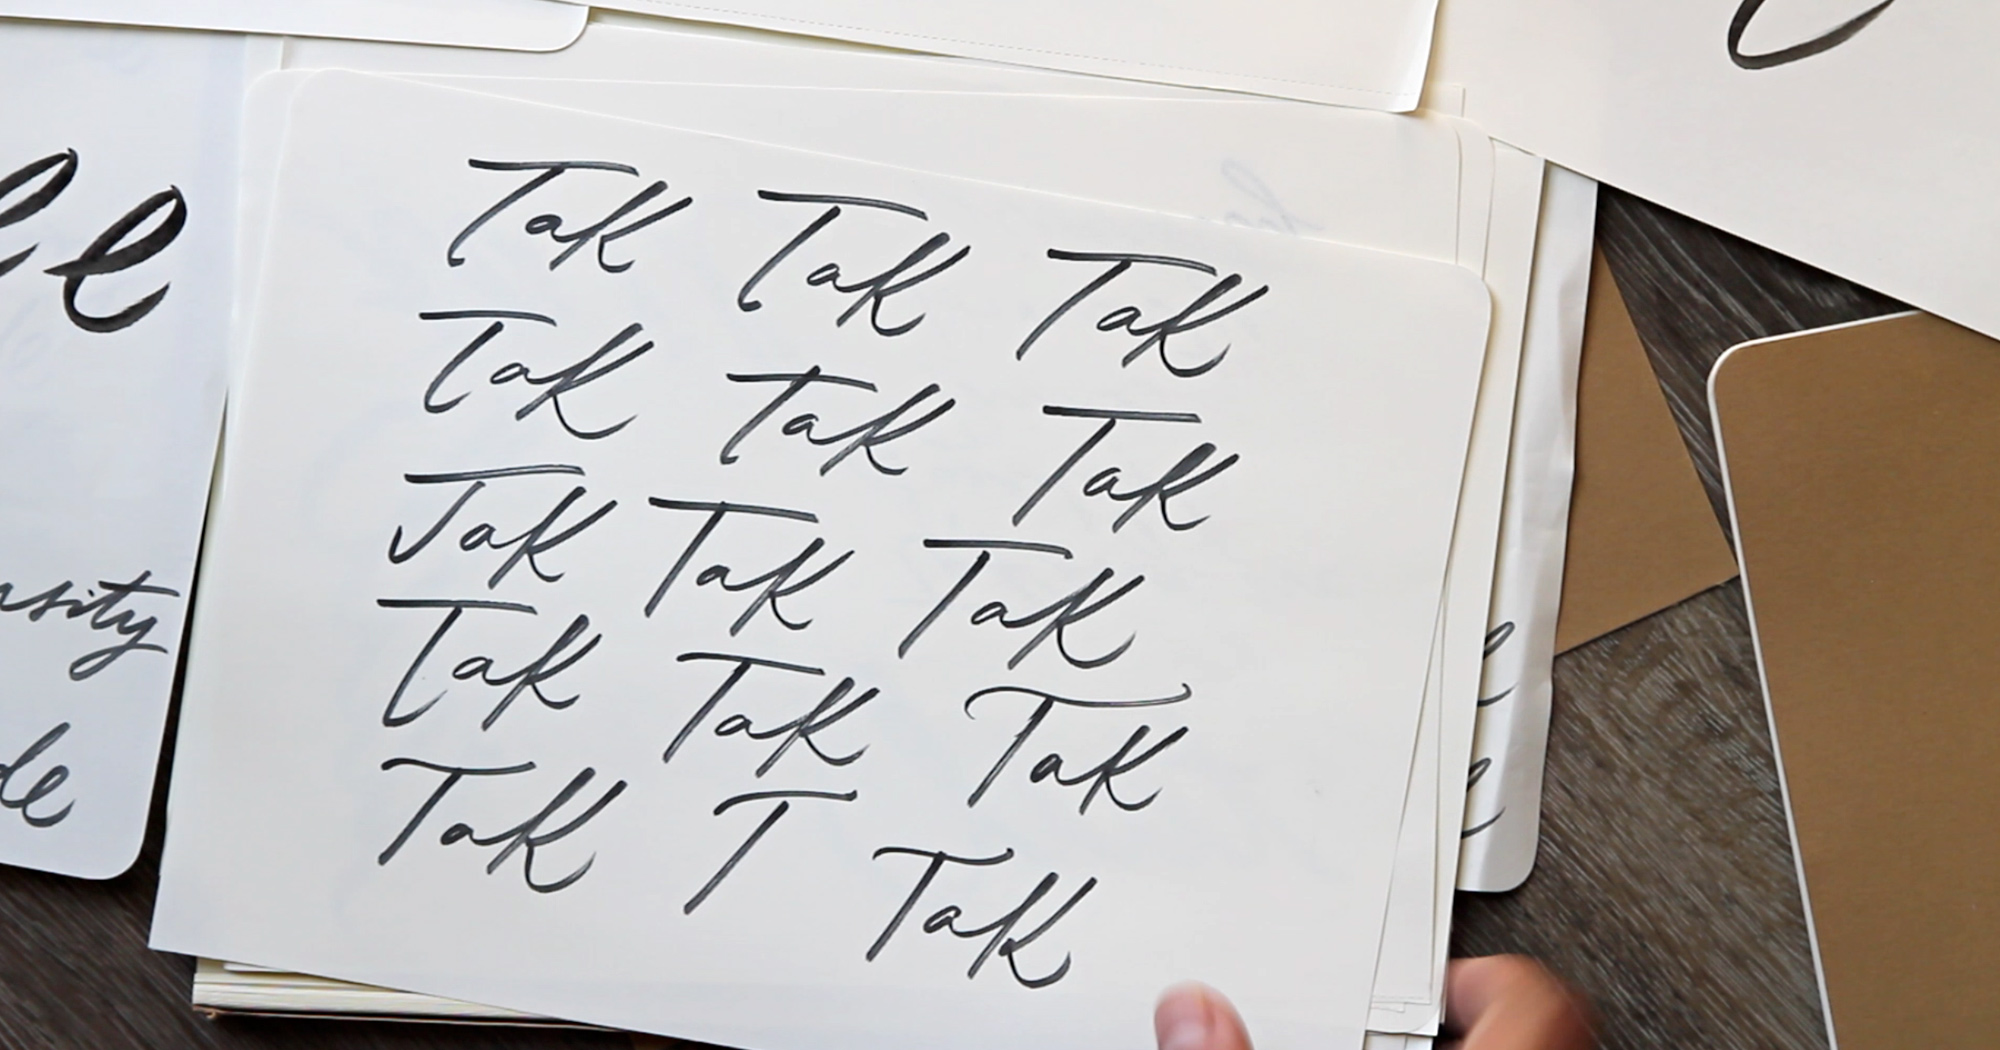 Tak Tak Tak
Tak Tak Tak
Tak Tak Tak
Tak Tak Tak
Tak T Tak